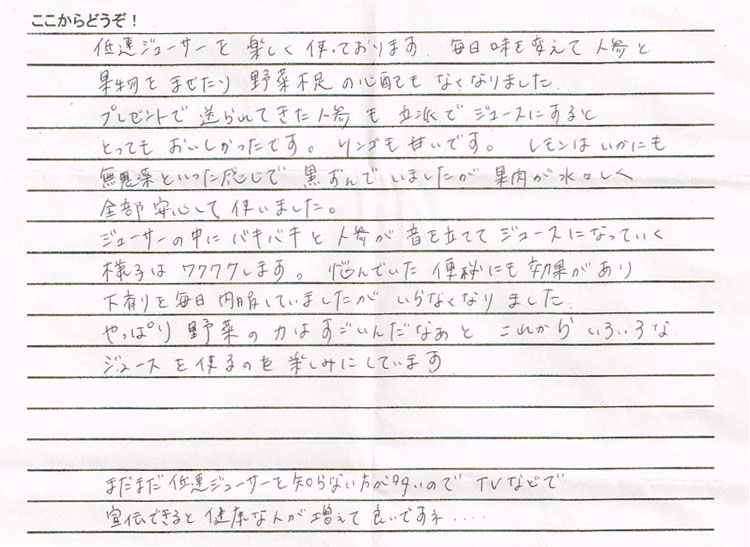 ここからどうぞ！
低速ジューサーを楽しく使っております。毎日味を変えて人参と
果物をまぜたり野菜不足の心配もなくなりました。
プレゼントで送られてきた人参も立派でジュースにすると
とってもおいしかったです。リンゴも甘いです。レモンはいかにも
無農薬といった感じで黒ずんでいましたが果肉が水々しく
全部安心して使いました。
ジューサーの中にバキバキと人参が音を立ててジュースになっていく
様子はワクワクします。悩んでいた便秘にも効果があり
下剤を毎日内服していましたがいらなくなりました。
やっぱり野菜の力はすごいんだなぁとこれからいろいろな
ジュースを作るのを楽しみにしています
まだまだ低速ジューサーを知らない方が多いのでTVなどで
宣伝できると健康な人が増えて良いですネ....